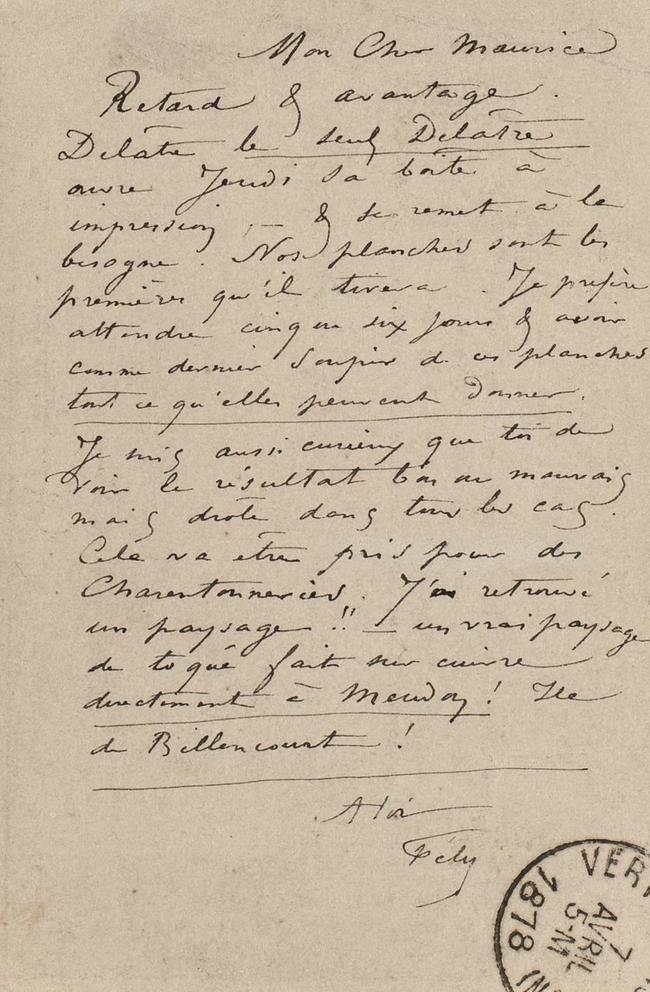 Mon Cher Maurice
Retard & avantage.
Delâtre le seul Delâtre
ouvre Jeudi sa boîte à
impression, – & se remet à la
besogne. Nos planches sont les
premières qu'il tirera. Je préfère
attendre cinq ou six jours & avoir
comme dernier soupir de ces planches
tout ce qu'elles peuvent donner.
Je suis aussi curieux que toi de
voir le résultat bon ou mauvais
mais drôle dans tous les cas.
Cela va être pris pour des
Charentonneries. J'ai retrouvé
un paysage!! – un vrai paysage
de toqué fait sur cuivre
directement à Meudon! Ile
de Billancourt!
A toi
Fély
VER
1878
7
AVRIL
5-M